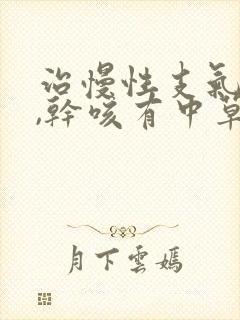 治慢性支氣
,幹咳有中草
月下雲嫣